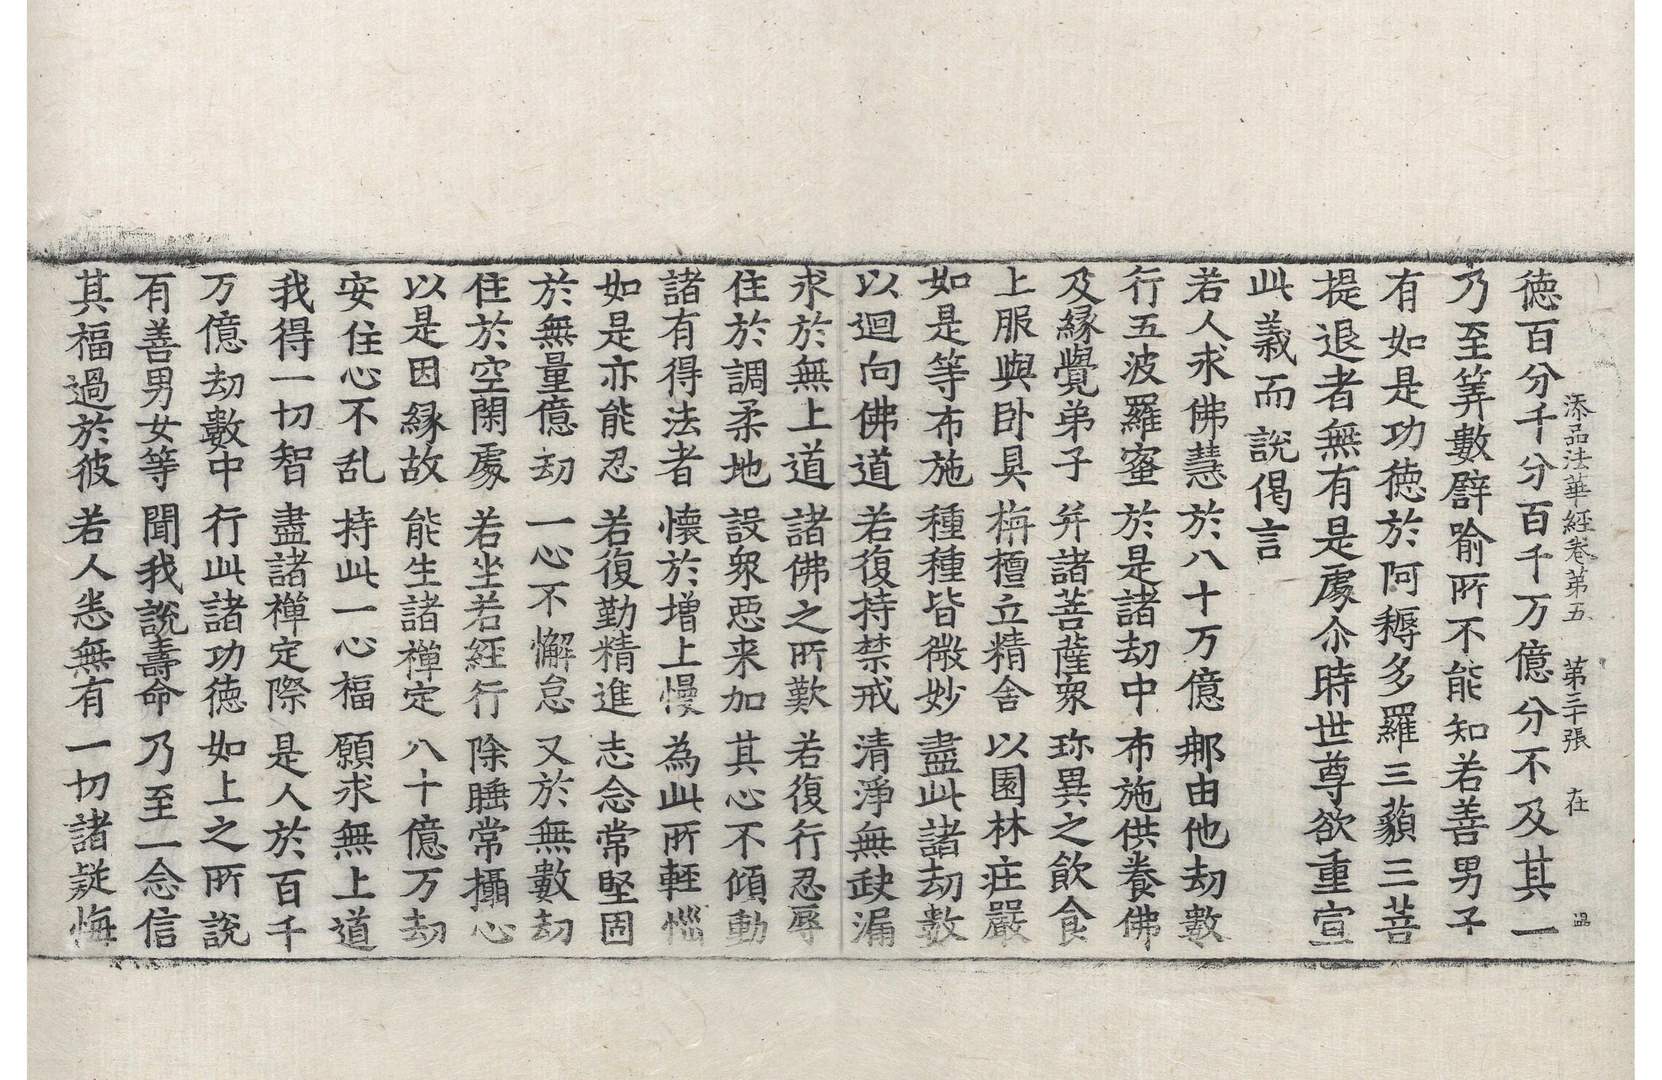 添品法華經卷第五 第三十張 在
德百分千分百千万億分不及其一
乃至筭數譬喻所不能知若善男子
有如是功德於阿耨多羅三藐三菩
提退者無有是處尒時世尊欲重宣
此義而說偈言
若人求佛慧於八十万億那由他劫數
行五波羅蜜於是諸劫中布施供養佛
及緣覺弟子并諸菩薩眾珎異之飲食
上服與卧具栴檀立精舍以園林庄嚴
如是等布施種種皆微妙盡此諸劫數
以迴向佛道若復持禁戒清淨無缺漏
求於無上道諸佛之所歎若復行忍辱
住於調柔地設眾惡来加其心不傾動
諸有得法者懷於增上慢為此所輕惱
如是亦能忍若復勤精進志念常堅固
於無量億劫一心不懈怠又於無數劫
住於空閑處若坐若經行除睡常攝心
以是因緣故能生諸禪定八十億万劫
安住心不乱持此一心福願求無上道
我得一切智盡諸禪定際是人於百千
万億劫數中行此諸功德如上之所說
有善男女等聞我說壽命乃至一念信
其福過於彼若人悉無有一切諸疑悔